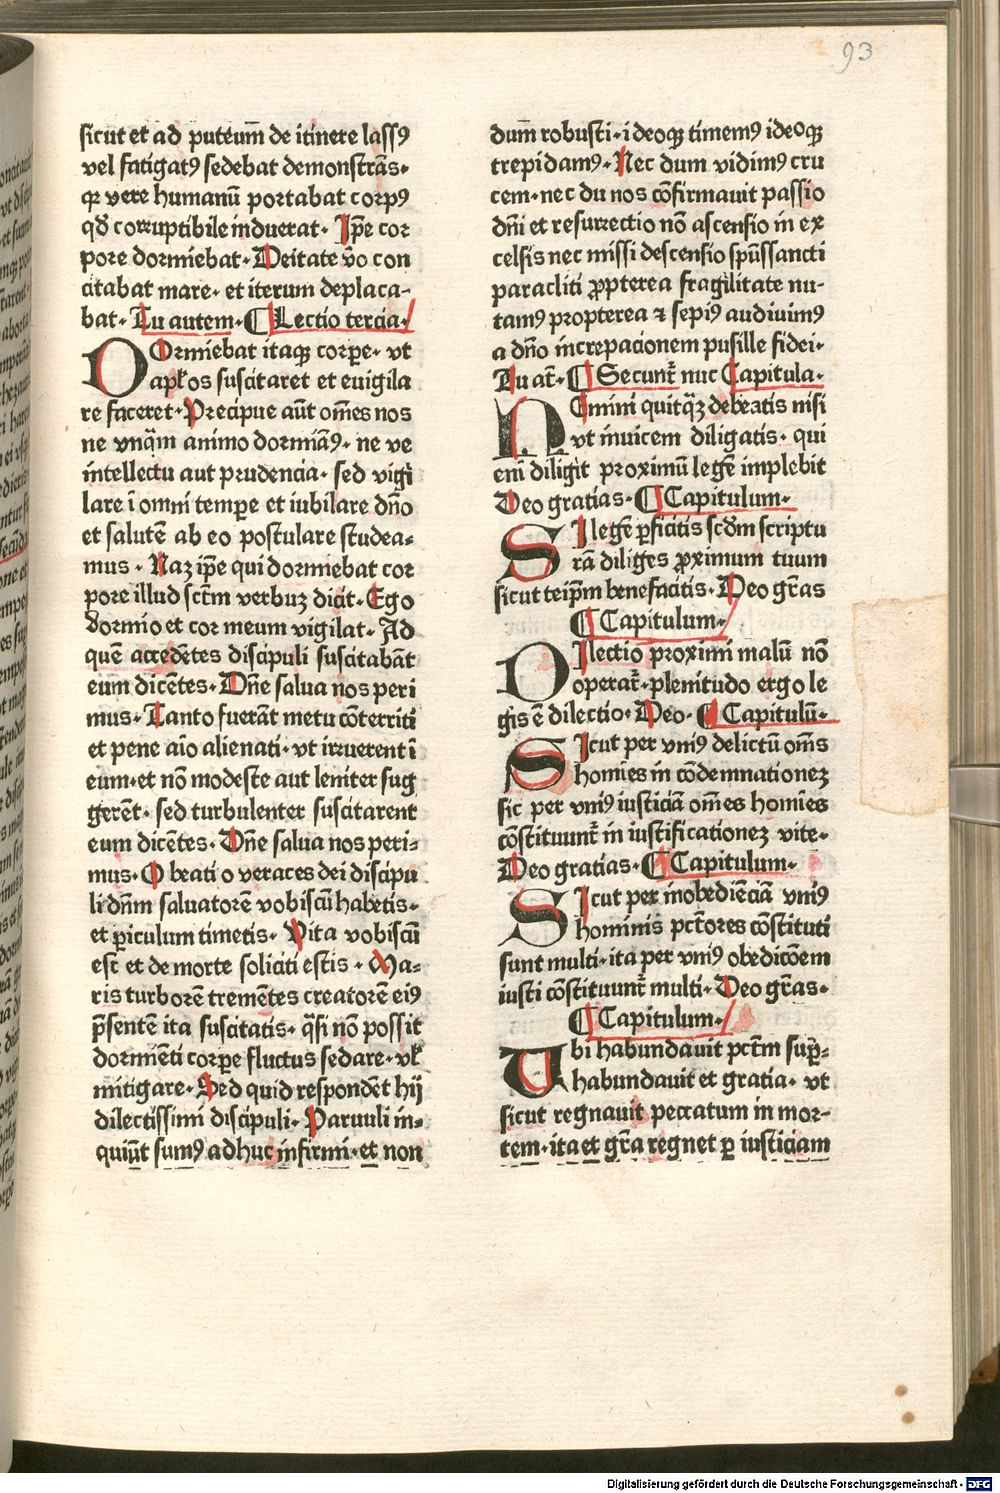 93
sicut et ad puteum̄ de itinere lassꝰ
vel fatigatꝰ sedebat demonstrās-
qꝫ vere humanū portabat corpꝰ
qd̄ corruptibile induerat. Ip̄e cor
pore dormiebat. Deitate v̄o con
citabat mare. et iterum deplaca-
bat. Tu autem. ¶ Lectio tercia.
DOrmiebat itaqꝫ corꝑe. vt
apl̄os suscitaret et euigila
re faceret. Precipue aūt om̄es nos
ne vnq̄m animo dormiāꝰ. ne ve
intellectu aut prudencia. sed vigi
lare ī omni temꝑe et iubilare dn̄o
et salutē ab eo postulare studea-
mus. Naz ip̄e qui dormiebat cor
pore illud sc̄tm verbuz dicit. Ego
dormio et cor meum vigilat. Ad
quē accedētes discipuli suscitabāt
eum dicētes. Dn̄e salua nos peri
mus. Tanto fuerāt metu cōterriti
et pene aīo alienati. vt irruerent ī
eum. et nō modeste aut leniter sug
gerēt. sed turbulenter suscitarent
eum dicētes. Dn̄e salua nos peri-
mus. O beati o veraces dei discipu
li dn̄m saluatorē vobiscū habetis.
et ꝑiculum timetis. Vita vobiscū
est et de morte soliciti estis. Ma-
ris turborē tremētes creatorē eiꝰ
p̄sentem ita suscitatis. q̄si nō possit
dormiēti corꝑe fluctus sedare. vl̄
mitigare. Sed quid respondēt hij
dilectissimi discipuli. Paruuli in-
quiūt sumꝰ adhuc infirmi. et non
dum robusti. ideoqꝫ timemꝰ ideoqꝫ
trepidamꝰ. Nec dum vidimꝰ cru
cem. nec du nos cōfirmauit passio
dn̄i et resurrectio nō ascensio in ex
celsis nec missi descensio sp̄ussancti
paracliti ꝓpterea fragilitate nu-
tamꝰ propterea ⁊ sepiꝰ audiuimꝰ
a dn̄o increpacionem pusille fidei.
Tu at̄. ¶ Secunt̄ nūc Capitula.
NEmini quitqꝫ debeatis nisi
vt inuicem diligatis. qui
enī diligit proximū legē implebit
Deo gratias. ¶ Capitulum.
SI legē ꝑficitis scd̄m scriptu
rā diliges ꝓximum tuum
sicut teip̄m benefacitis. Deo gr̄as
¶ Capitulum.
DIlectio proximi malū nō
operat̄. plenitudo ergo le
gis ē dilectio. Deo. ¶ Capitulū.
SIcut per vniꝰ delictū om̄s
homies in cōdemnationez
sic per vniꝰ iusticiā om̄es homīes
cōstituunt̄ in iustificationez vite.
Deo gratias. ¶ Capitulum.
SIcut per inobediēciā vniꝰ
hominis pctōres cōstituti
sunt multi. ita per vniꝰ obediōem
iusti cōstituunt̄ multi. Deo gr̄as.
¶ Capitulum.
Vbi habundauit pctm̄ suꝑ-
habundauit et gratia. vt
sicut regnauit peccatum in mor-
tem. ita et gr̄a regnet ꝑ iusticiam
Digitalisierung gefördert durch die Deutsche Forschungsgemeinschaft - DFG